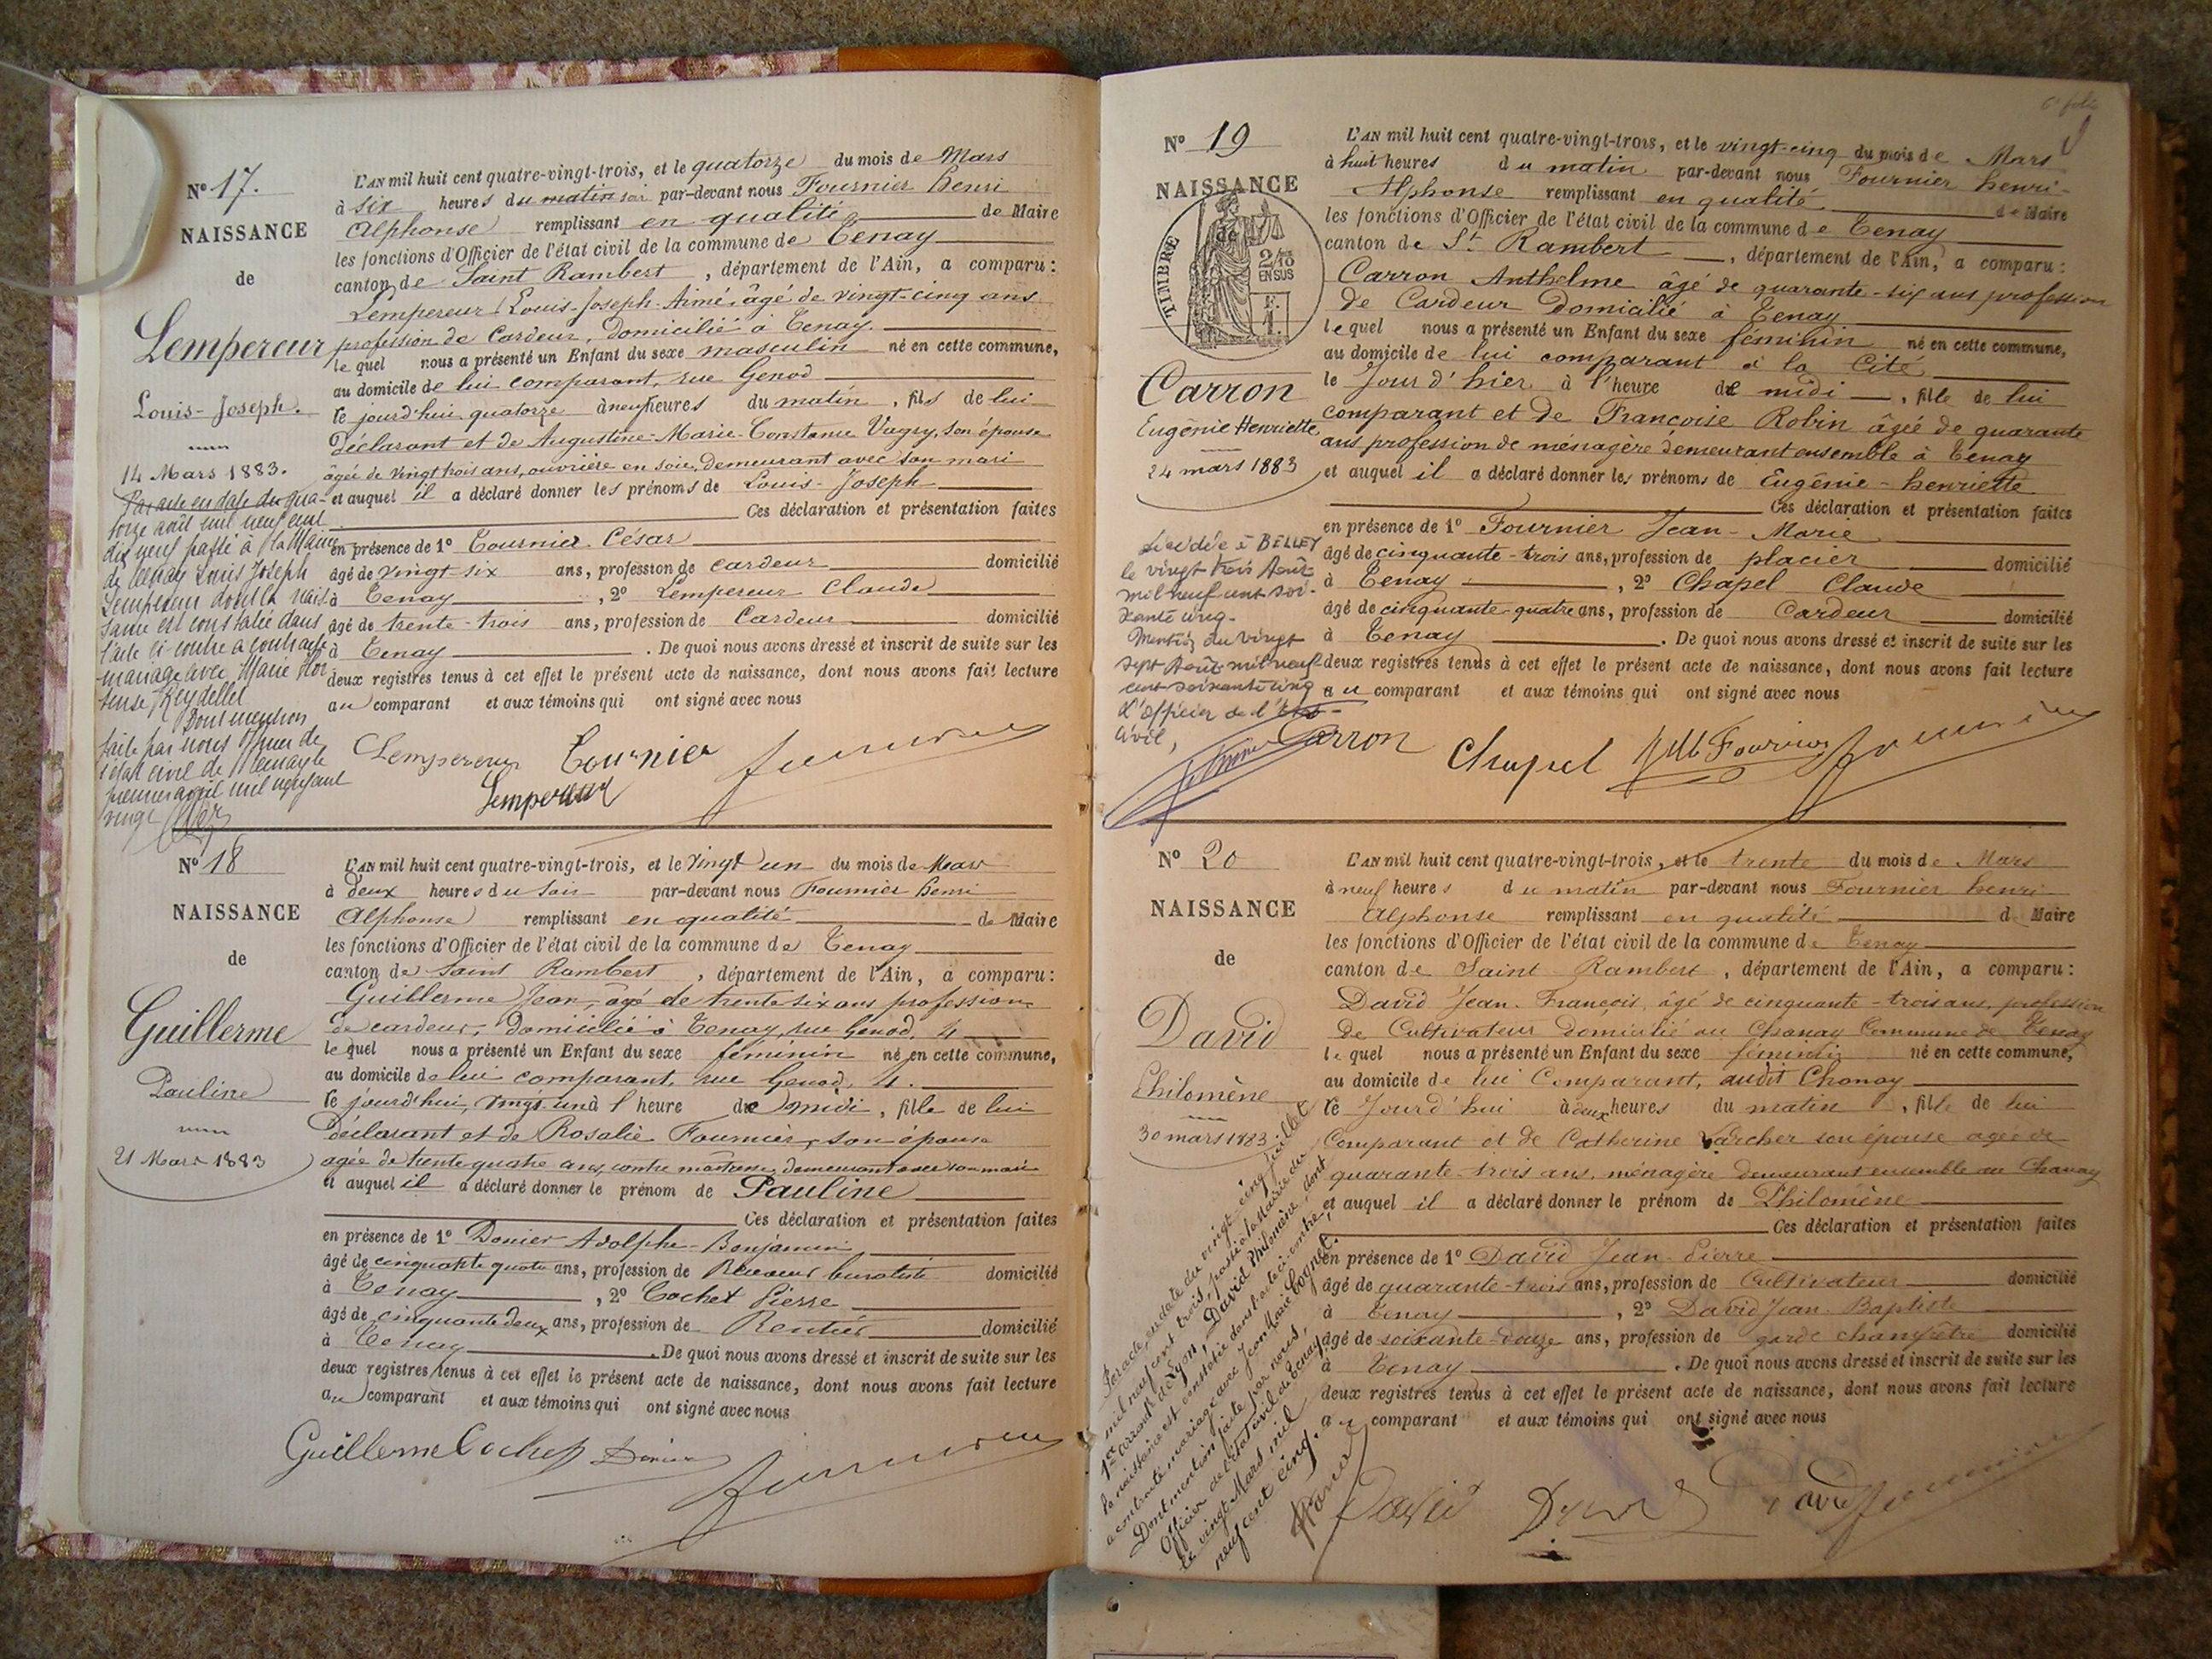 No 17.
NAISSANCE
de
Lempereur
Louis-Joseph.
14 Mars 1883.
Par acte en date du qua-
torze août mil neuf cent
dix neuf passé à la Mairie
de Tenay Louis Joseph
Lempereur dont la nais-
sance est constatée dans
l'acte ci-contre a contracté
mariage avec Marie Hor-
tense Reydellet
Dont mention
faite par nous officier de
l'état civil de Tenay le
premier avril mil neuf cent
vingt
L'AN mil huit cent quatre-vingt-trois, et le quatorze du mois de Mars
à six heures du matin soir par-devant nous Fournier Henri
Alphonse remplissant en qualité de Maire
les fonctions d'Officier de l'état civil de la commune de Tenay
canton de Saint Rambert, département de l'Ain, a comparu:
Lempereur Louis-Joseph-Aimé, âgé de vingt-cinq ans
profession de Cardeur, domicilié à Tenay.
le quel nous a présenté un Enfant du sexe masculin né en cette commune,
au domicile de lui comparant, rue Genod
le jourd'hui quatorze à neuf heures du matin, fils de lui
Déclarant et de Augustine-Marie-Constance Vagry, son épouse
âgée de vingt trois ans, ouvrière en soie, demeurant avec son mari
et auquel il a déclaré donner les prénoms de Louis-Joseph
Ces déclaration et présentation faites
en présence de 1º Tournier César
âgé de vingt-six ans, profession de cardeur domicilié
à Tenay, 2º Lempereur Claude
âgé de trente-trois ans, profession de Cardeur domicilié
à Tenay. De quoi nous avons dressé et inscrit de suite sur les
deux registres tenus à cet effet le présent acte de naissance, dont nous avons fait lecture
au comparant et aux témoins qui ont signé avec nous
Lempereur Tournier
Lempereur
No 18
NAISSANCE
de
Guillerme
Pauline
21 Mars 1883
L'AN mil huit cent quatre-vingt-trois, et le vingt un du mois de Mars
à deux heures du soir par-devant nous Fournier Henri
Alphonse remplissant en qualité de Maire
les fonctions d'Officier de l'état civil de la commune de Tenay
canton de Saint Rambert, département de l'Ain, a comparu:
Guillerme Jean, âgé de trente six ans profession
de cardeur, domicilié à Tenay, rue Genod, 4
le quel nous a présenté un Enfant du sexe féminin né en cette commune,
au domicile de lui comparant, rue Genod, 4.
le jourd'hui, vingt un à l'heure de midi, fille de lui
déclarant et de Rosalie Fournier, son épouse
agée de trente quatre ans, contre maitresse, demeurant avec son mari
et auquel il a déclaré donner le prénom de Pauline
Ces déclaration et présentation faites
en présence de 1º Donier Adolphe-Benjamin
âgé de cinquante quatre ans, profession de Receveur buraliste domicilié
à Tenay, 2º Cochet Pierre
âgé de cinquante deux ans, profession de Rentier domicilié
à Tenay. De quoi nous avons dressé et inscrit de suite sur les
deux registres tenus à cet effet le présent acte de naissance, dont nous avons fait lecture
au comparant et aux témoins qui ont signé avec nous
Guillerme Cochet Donier
No 19
NAISSANCE
de
TIMBRE
2/10 EN SUS
Carron
Eugénie Henriette
24 mars 1883
Décédée à BELLEY
le vingt trois Août
mil neuf cent soi-
xante cinq.
Mention du vingt
sept Août mil neuf
cent soixante cinq
L'officier de l'Etat-
Civil,
L'AN mil huit cent quatre-vingt-trois, et le vingt-cinq du mois de Mars
à huit heures du matin par-devant nous Fournier henri-
Alphonse remplissant en qualité de Maire
les fonctions d'Officier de l'état civil de la commune de Tenay
canton de St Rambert, département de l'Ain, a comparu:
Carron Anthelme âgé de quarante-six ans profession
de Cardeur Domicilié à Tenay
le quel nous a présenté un Enfant du sexe féminin né en cette commune,
au domicile de lui comparant à la Cité
le Jour d'hier à l'heure de midi, fille de lui
comparant et de Françoise Robin âgée de quarante
ans profession de ménagère demeurant ensemble à Tenay
et auquel il a déclaré donner les prénoms de Eugénie-henriette
Ces déclaration et présentation faites
en présence de 1º Fournier Jean-Marie
âgé de cinquante-trois ans, profession de placier domicilié
à Tenay, 2º Chapel Claude
âgé de cinquante-quatre ans, profession de Cardeur domicilié
à Tenay. De quoi nous avons dressé et inscrit de suite sur les
deux registres tenus à cet effet le présent acte de naissance, dont nous avons fait lecture
au comparant et aux témoins qui ont signé avec nous
Carron Chapel Fournier
No 20
NAISSANCE
de
David
Philomène
30 mars 1883
Par acte, en date du vingt-cinq juillet
mil neuf cent trois, passé à la Mairie du
1er arrondt de Lyon, David Philomène, dont
la naissance est constatée dans l'acte ci-contre,
a contracté mariage avec Jean Marie Cognet.
Dont mention faite par nous,
Officier de l'état civil de Tenay,
le vingt Mars mil
neuf cent cinq.
L'AN mil huit cent quatre-vingt-trois, et le trente du mois de Mars
à neuf heures du matin par-devant nous Fournier henri
Alphonse remplissant en qualité de Maire
les fonctions d'Officier de l'état civil de la commune de Tenay
canton de Saint Rambert, département de l'Ain, a comparu:
David Jean-François, âgé de cinquante-trois ans, profession
de Cultivateur Domicilié au Chanay Commune de Tenay
le quel nous a présenté un Enfant du sexe féminin né en cette commune,
au domicile de lui Comparant, audit Chanay
le Jourd'hui à deux heures du matin, fille de lui
Comparant et de Catherine Larcher son épouse agée de
quarante-trois ans, ménagère demeurant ensemble au Chanay
et auquel il a déclaré donner le prénom de Philomène
Ces déclaration et présentation faites
en présence de 1º David Jean-Pierre
âgé de quarante-trois ans, profession de Cultivateur domicilié
à Tenay, 2º David Jean-Baptiste
âgé de soixante-douze ans, profession de garde champêtre domicilié
à Tenay. De quoi nous avons dressé et inscrit de suite sur les
deux registres tenus à cet effet le présent acte de naissance, dont nous avons fait lecture
au comparant et aux témoins qui ont signé avec nous
David David